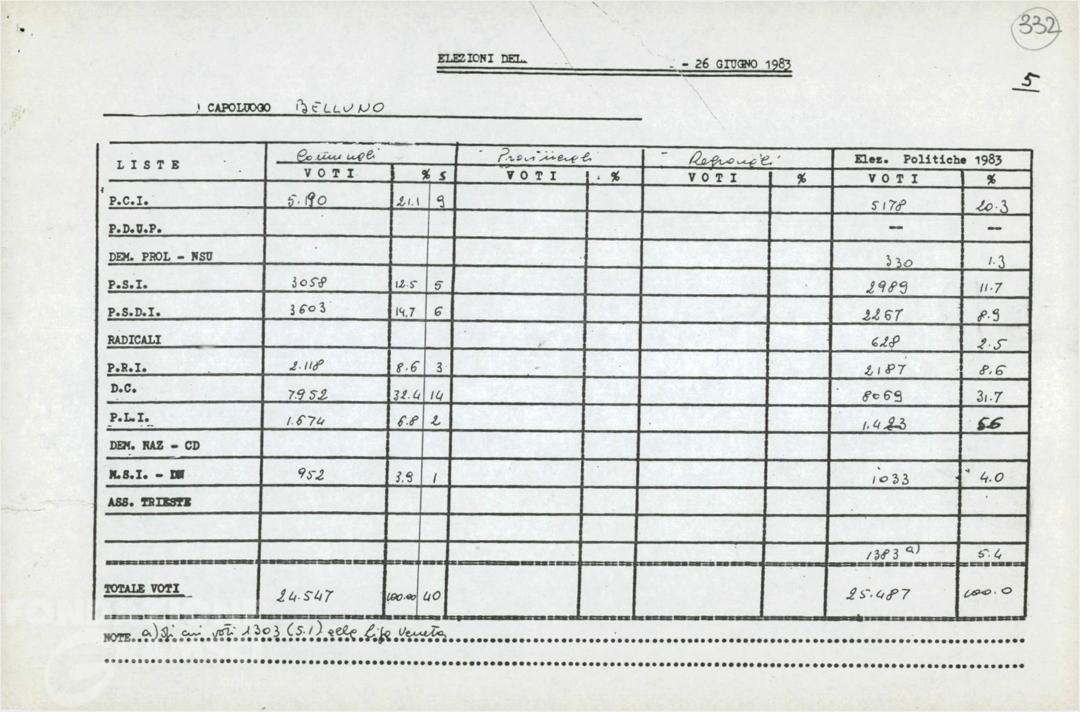 332
ELEZIONI DEL - 26 GIUGNO 1983
5
) CAPOLUOGO BELLUNO
LISTE Comunali Provinciali Regionali Elez. Politiche 1983
VOTI % S VOTI % VOTI % VOTI %
P.C.I. 5.190 21.1 9 5178 20.3
P.D.U.P. -- --
DEM. PROL - NSU 330 1.3
P.S.I. 3058 12.5 5 2989 11.7
P.S.D.I. 3603 14,7 6 2267 8.9
RADICALI 628 2.5
P.R.I. 2.118 8.6 3 2187 8.6
D.C. 7952 32.4 14 8069 31.7
P.L.I. 1.674 6.8 2 1.423 5.6
DEM. NAZ - CD
M.S.I. - DN 952 3.9 1 1033 4.0
ASS. TRIESTE
1383 a) 5.4
TOTALE VOTI 24.547 100.00 40 25.487 100.0
NOTE a) Di cui voti 1303 (5.1) alla Liga Veneta
FONDAZIONE
GRAMSCI